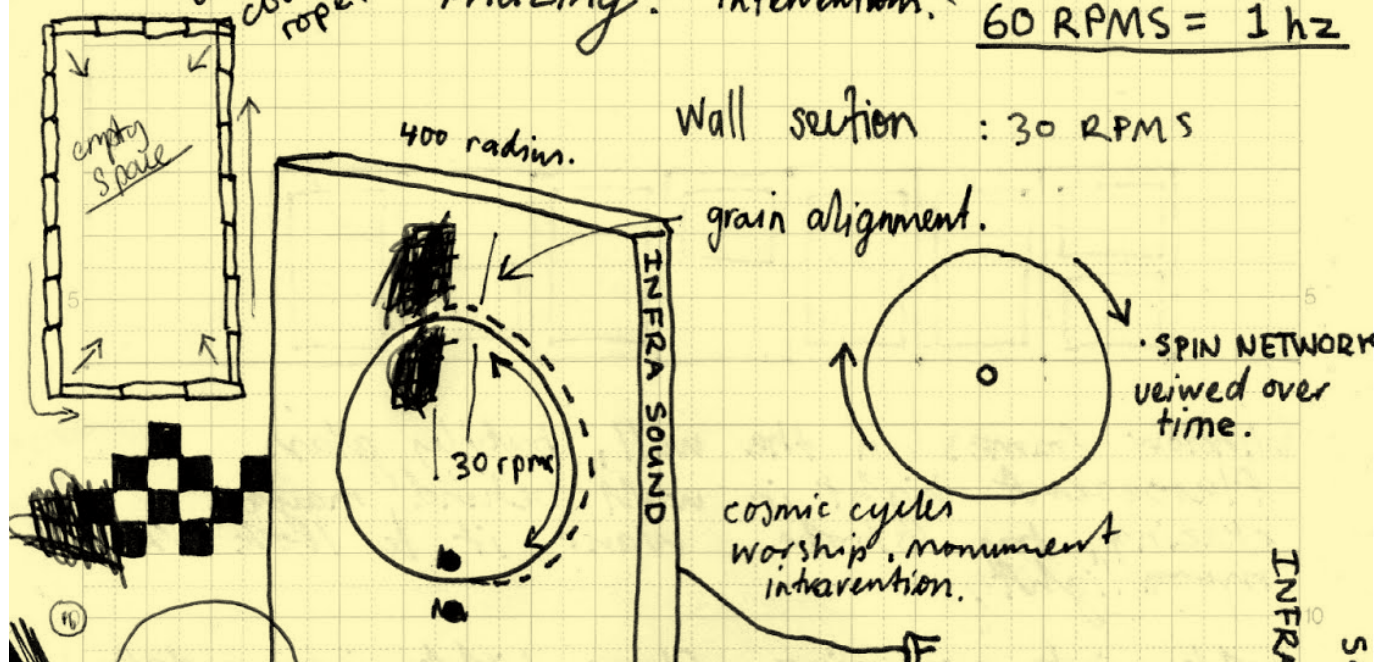 rope
Amazing. intervention.
60 RPMS = 1 hz
empty
space
400 radius.
Wall section : 30 RPMS
grain alignment.
INFRA SOUND
30 rpms
· SPIN NETWORK
veiwed over
time.
cosmic cycles
worship, monument
intravention.
INFRA
5
5
10